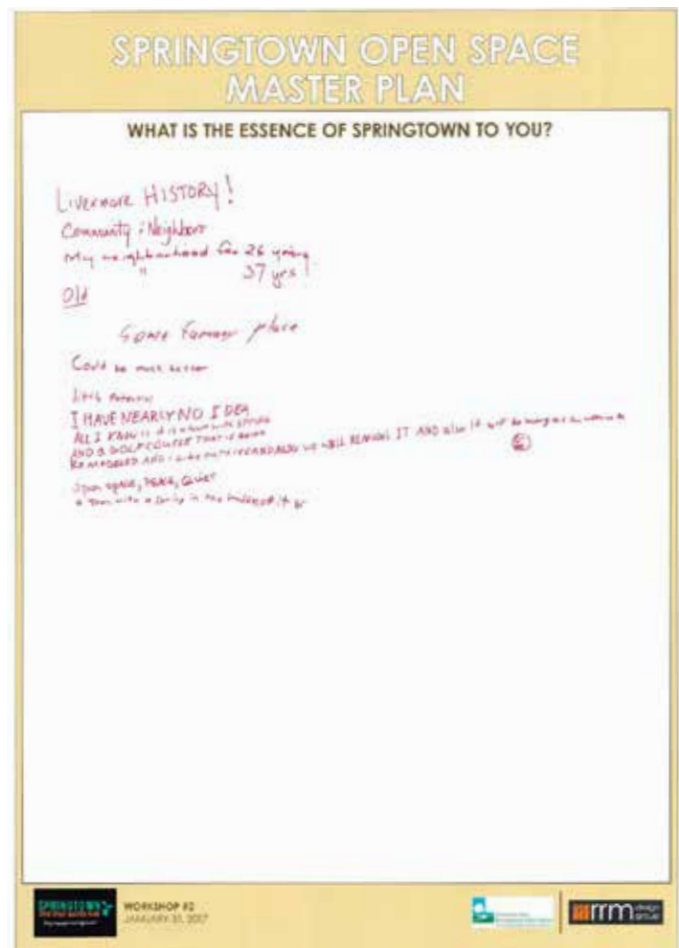 SPRINGTOWN OPEN SPACE
MASTER PLAN
WHAT IS THE ESSENCE OF SPRINGTOWN TO YOU?
LIVERMORE HISTORY!
Community & Neighbors
My neighborhood for 26 years
" 37 yrs
Old
Some Farmer place
Could be much better
I HAVE NEARLY NO IDEA
ALL I KNOW is it is a town with
AND a GOLF COURSE THAT is being
REMODELED AND WE WILL REMODEL IT AND also it will be
Open space, PEACE, Quiet
A Town with a in the middle of it
SPRINGTOWN
WORKSHOP #2
JANUARY 31, 2017
rrm design group